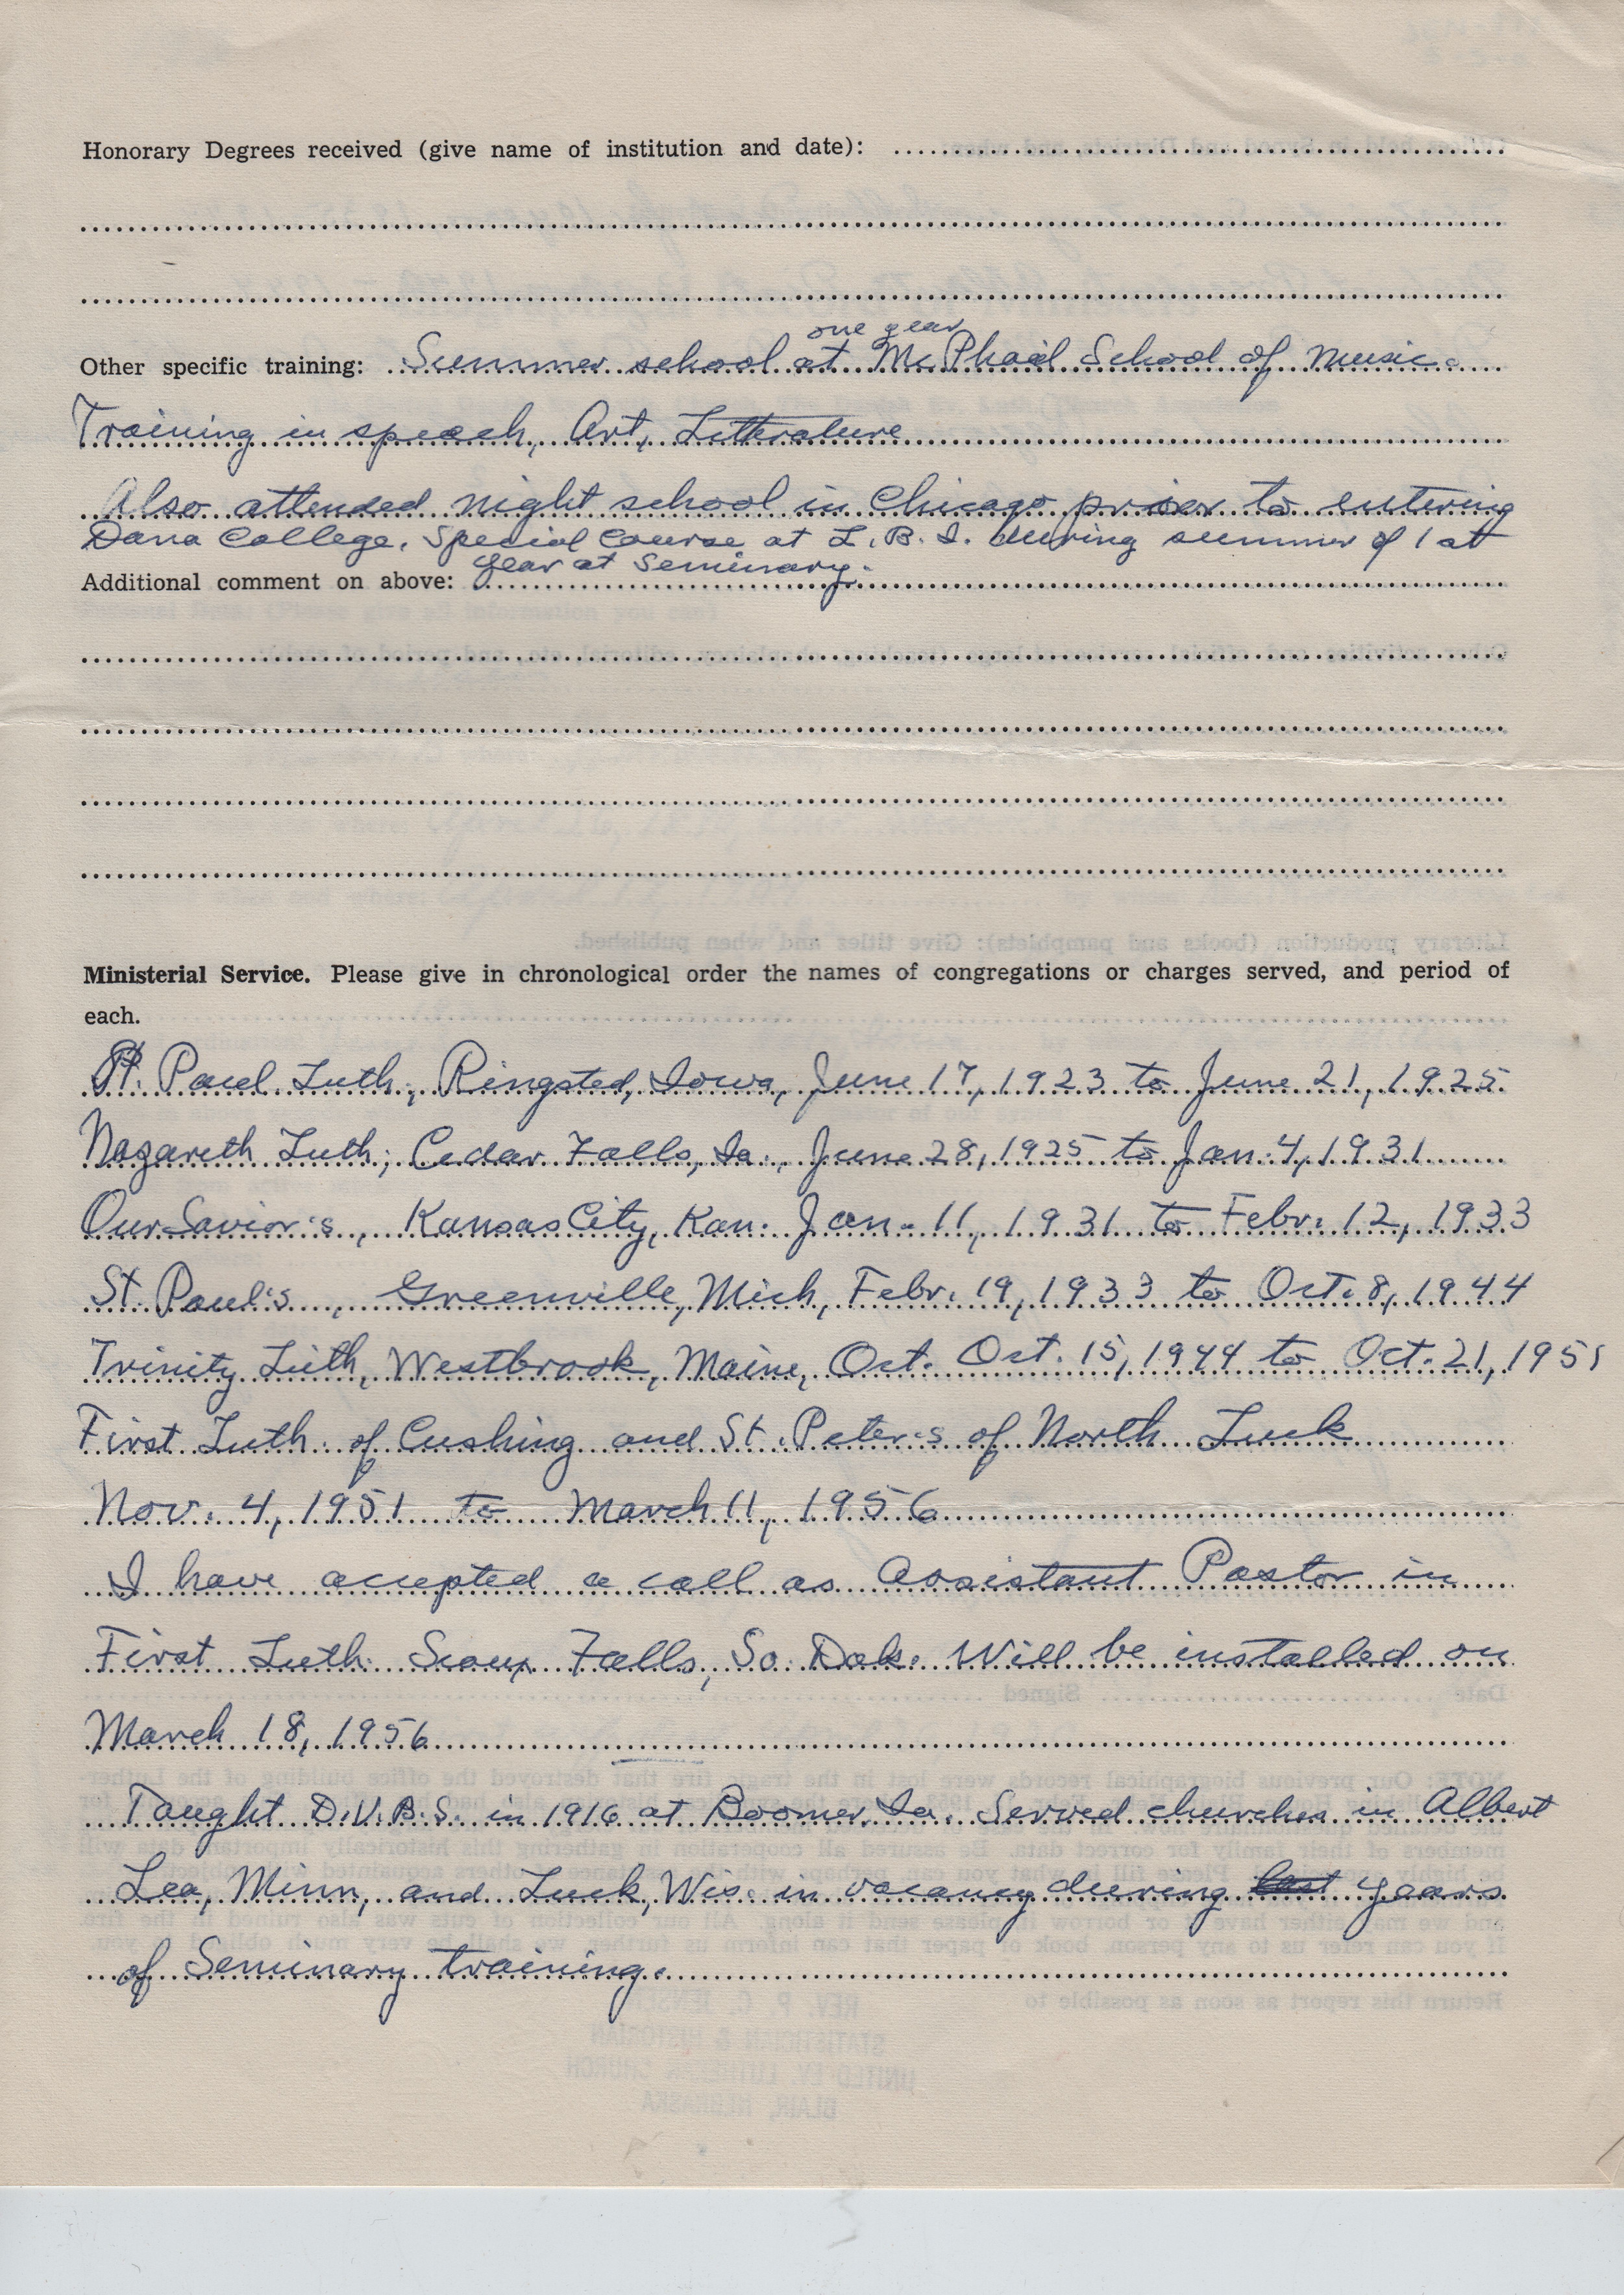 Honorary Degrees received (give name of institution and date):
one year
Other specific training: Summer school at McPhail School of Music.
Training in speech, Art, Litterature
Also attended night school in Chicago prior to entering
Dana College. Special Course at L.B.I. during summer of 1st
year at Seminary.
Additional comment on above:
Ministerial Service. Please give in chronological order the names of congregations or charges served, and period of
each.
St. Paul Luth; Ringsted, Iowa, June 17, 1923 to June 21, 1925
Nazareth Luth; Cedar Falls, Ia., June 28, 1925 to Jan. 4, 1931
Our Savior's, Kansas City, Kan. Jan. 11, 1931 to Febr. 12, 1933
St. Paul's, Greenville, Mich, Febr. 19, 1933 to Oct. 8, 1944
Trinity Luth, Westbrook, Maine, Oct. Oct. 15, 1944 to Oct. 21, 1951
First Luth. of Cushing and St. Peter's of North Luck
Nov. 4, 1951 to March 11, 1956
I have accepted a call as Assistant Pastor in
First Luth. Sioux Falls, So. Dak. Will be installed on
March 18, 1956
Taught D.V.B.S. in 1916 at Boomer, Ia. Served churches in Albert
Lea, Minn, and Luck, Wis. in vacancy during last years
of Seminary training.